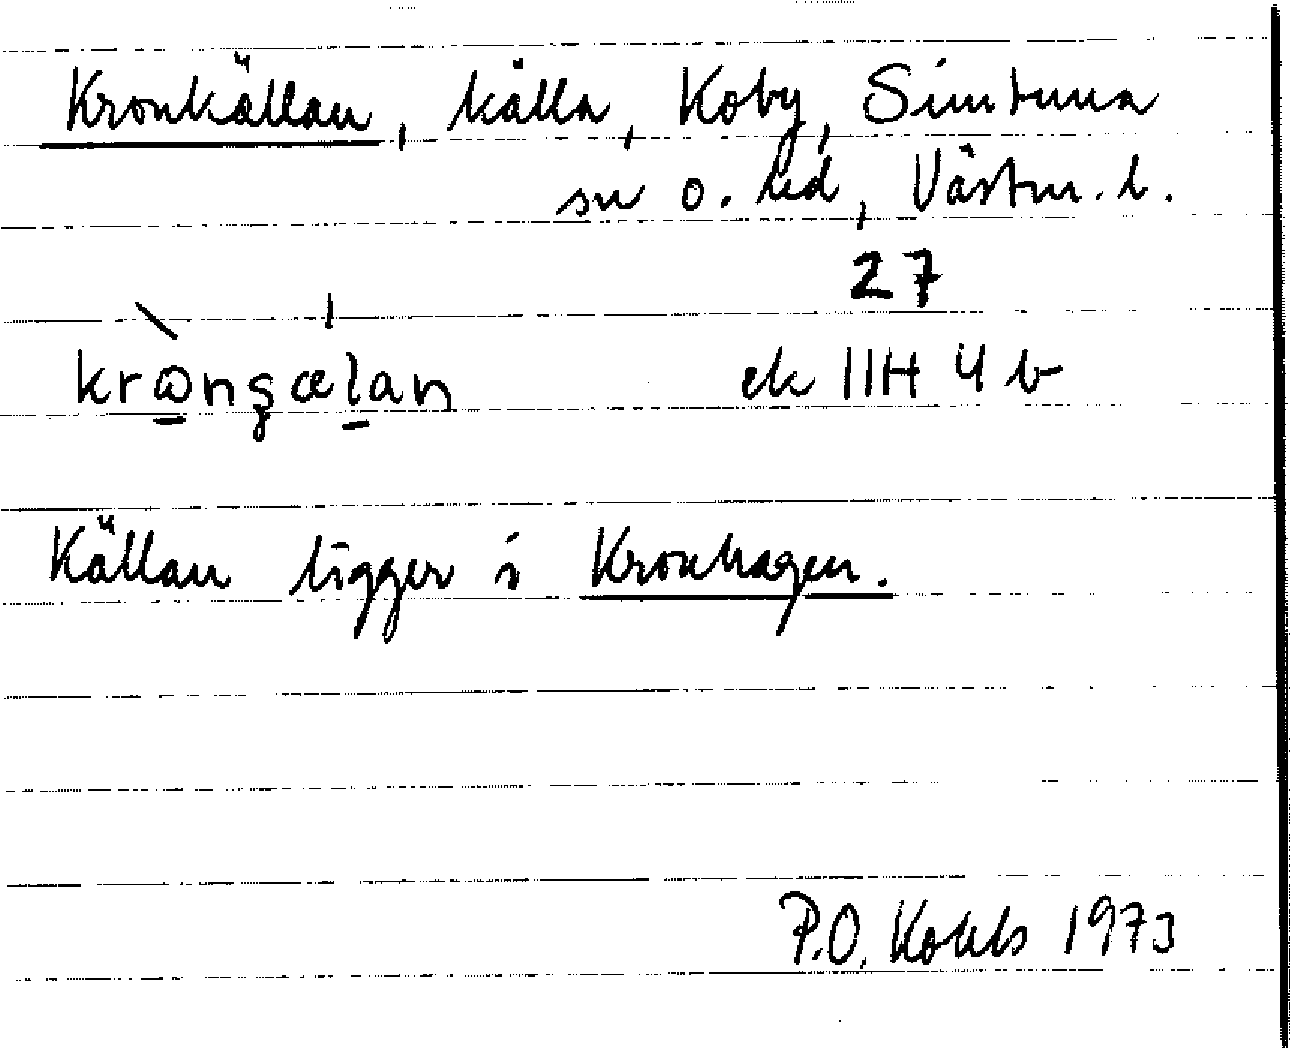 Kronkällan, källa, Koby, Simtuna
sn o. hd, Västm. l.
27
ek 11H 4 b
Källan ligger i Kronhagen.
P.O. 1973